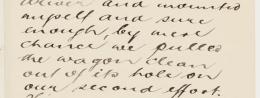 driver and mounted
myself and sure
enough, by mere
chance we pulled
the wagon clean
out of its hole on
our second effort.